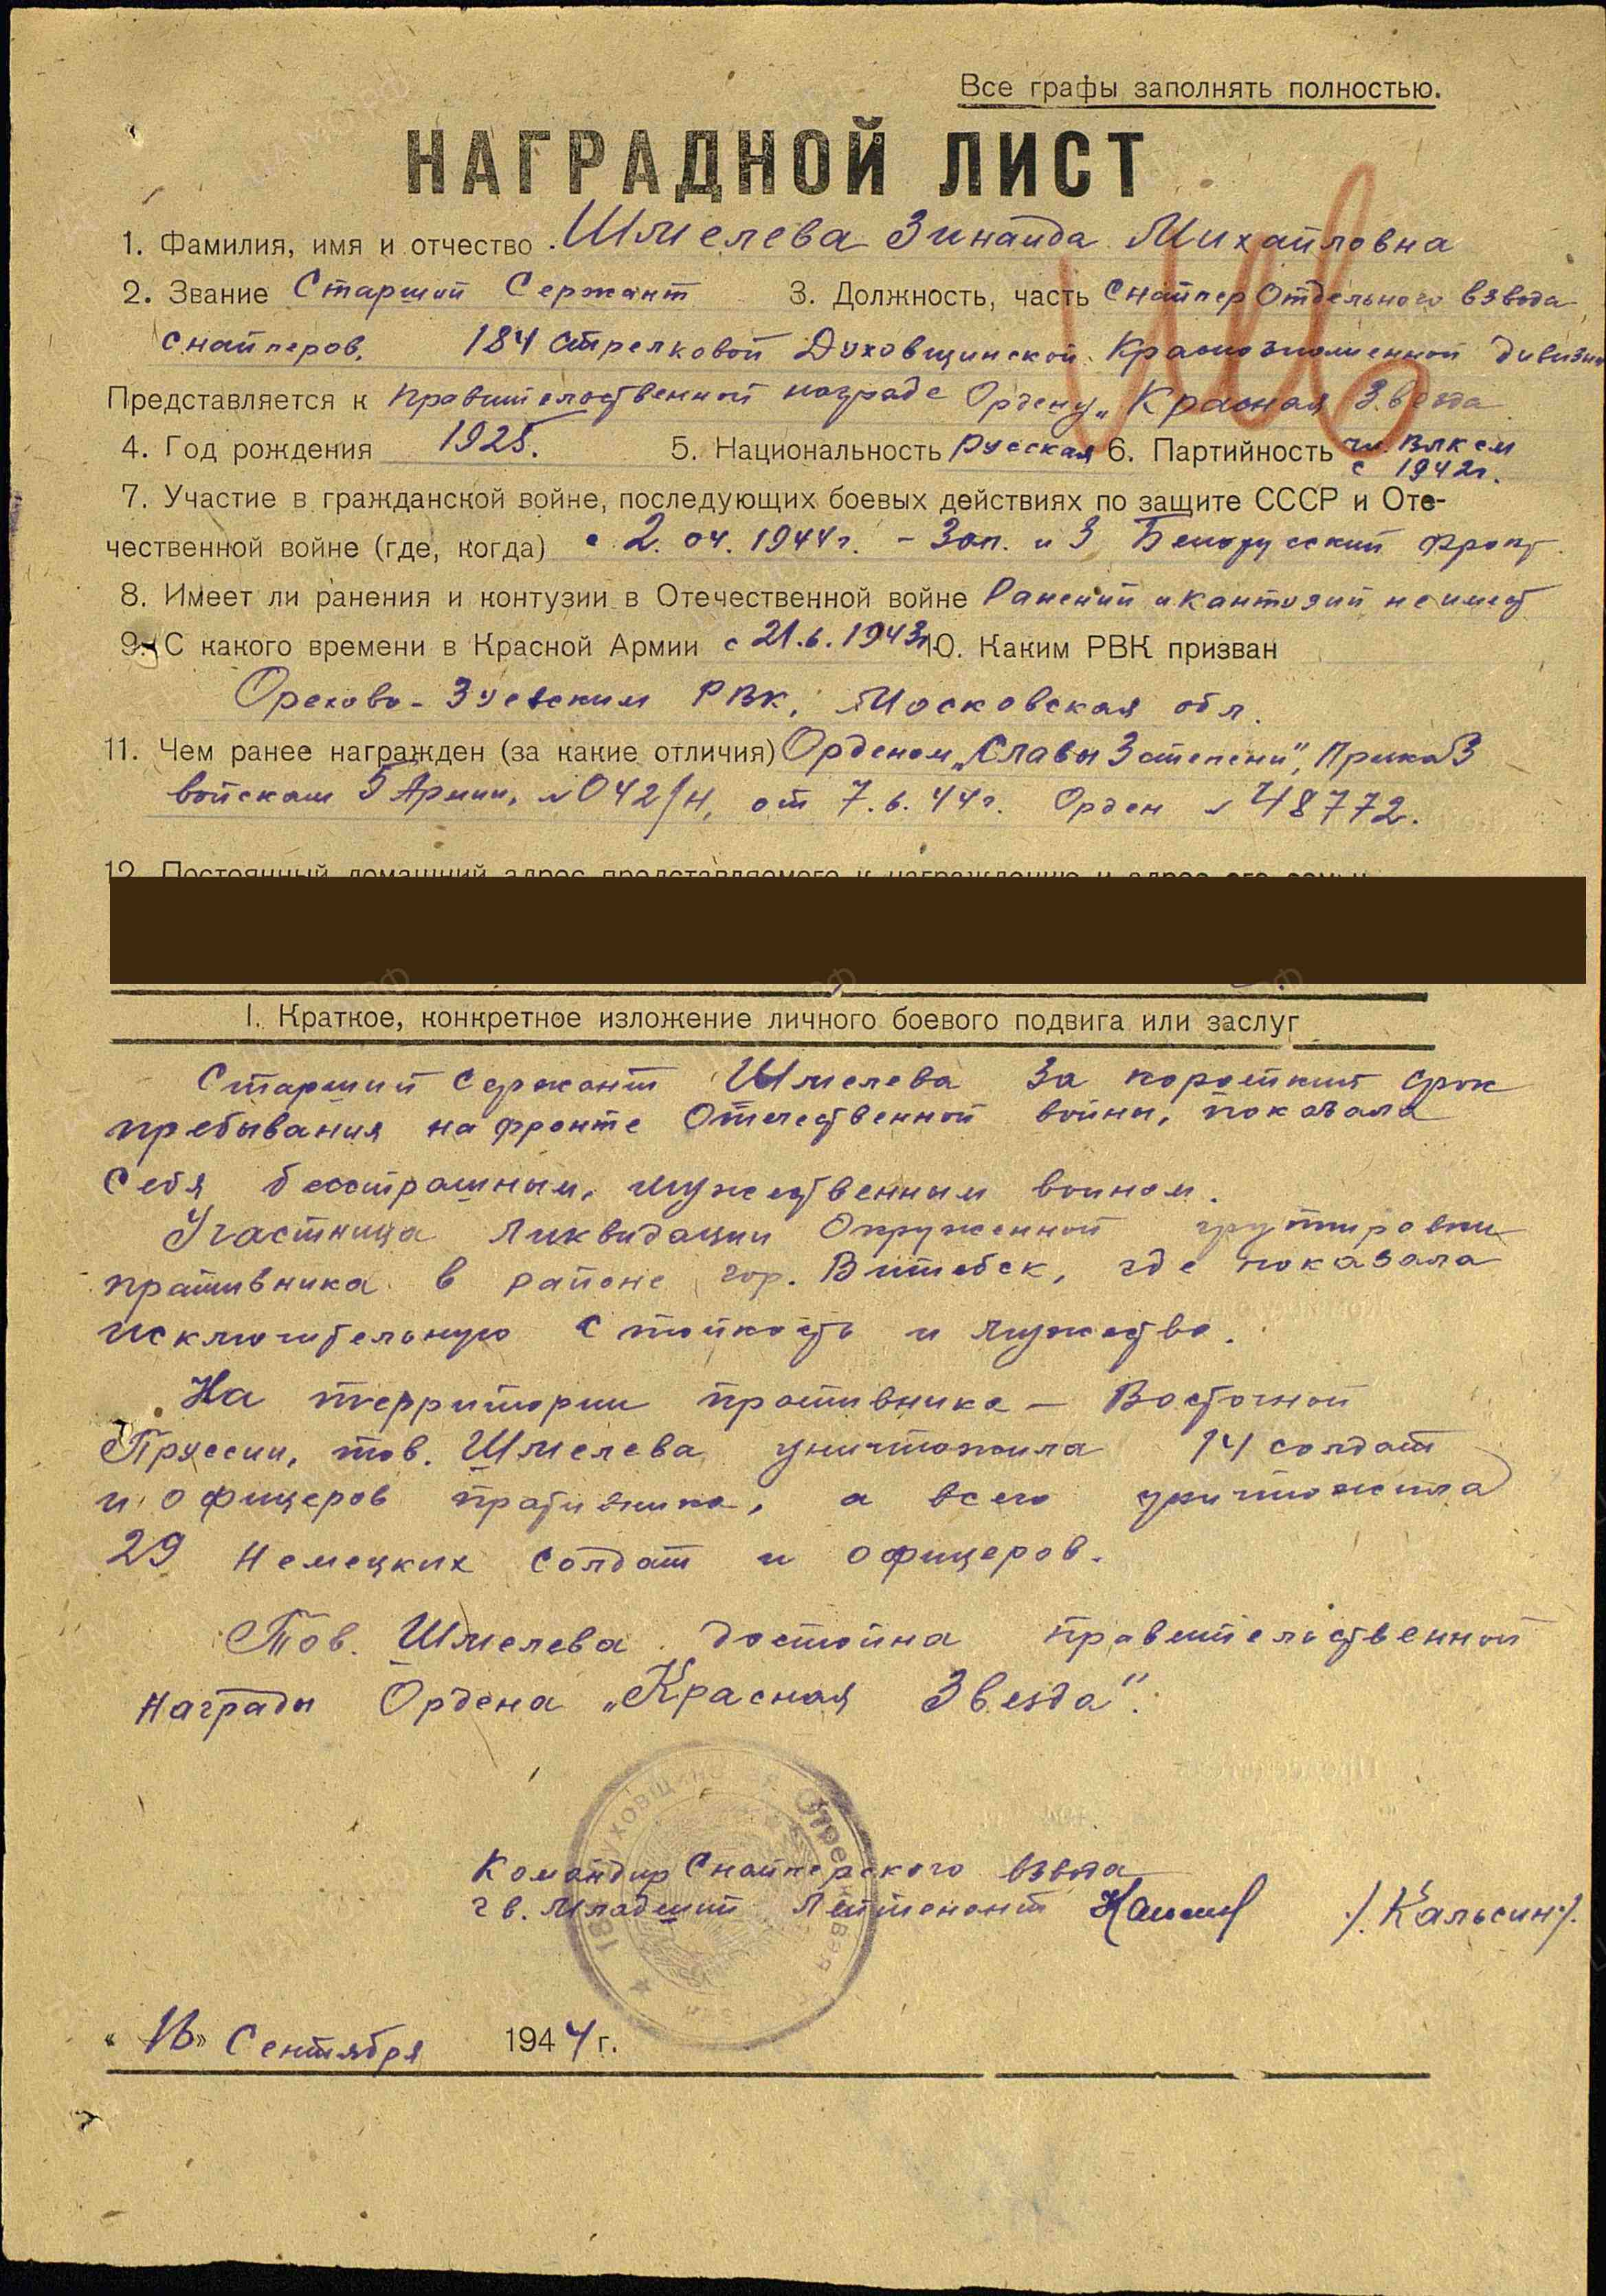 Все графы заполнять полностью.
НАГРАДНОЙ ЛИСТ
1. Фамилия, имя и отчество Шмелева Зинаида Михайловна
2. Звание Старший Сержант 3. Должность, часть Снайпер Отдельного взвода
снайперов, 184 стрелковой Духовщинской Краснознаменной дивизии
Представляется к правительственной награде Ордену „Красная Звезда
4. Год рождения 1925. 5. Национальность русская 6. Партийность чл. ВЛКСМ
с 1942г.
7. Участие в гражданской войне, последующих боевых действиях по защите СССР и Оте-
чественной войне (где, когда) с 2. 04. 1944г. - Зап. и 3 Белорусский фронт.
8. Имеет ли ранения и контузии в Отечественной войне Ранений и кантозий не имеет
9. С какого времени в Красной Армии с 21.6.1943г. 10. Каким РВК призван
Орехово-Зуевским РВК, Московская обл.
11. Чем ранее награжден (за какие отличия) Орденом „Славы 3 степени", Приказ
войскам 5 Армии, №042/н, от 7.6.44г. Орден № 48772.
12. Постоянный домашний адрес представляемого к награждению и адрес его семьи
I. Краткое, конкретное изложение личного боевого подвига или заслуг
Старший сержант Шмелева за короткий срок
пребывания на фронте Отечественной войны, показала
себя бесстрашным, мужественным воином.
Участница ликвидации Окруженной группировки
противника в районе гор. Витебск, где показала
исключительную стойкость и мужество.
На территории противника - Восточной
Пруссии, тов. Шмелева уничтожила 14 солдат
и офицеров противника, а всего уничтожила
29 немецких солдат и офицеров.
Тов. Шмелева достойна правительственной
награды Ордена „Красная Звезда".
Командир Снайперского взвода
гв. Младший Лейтенант /Кальсин/.
«16» Сентября 1944 г.